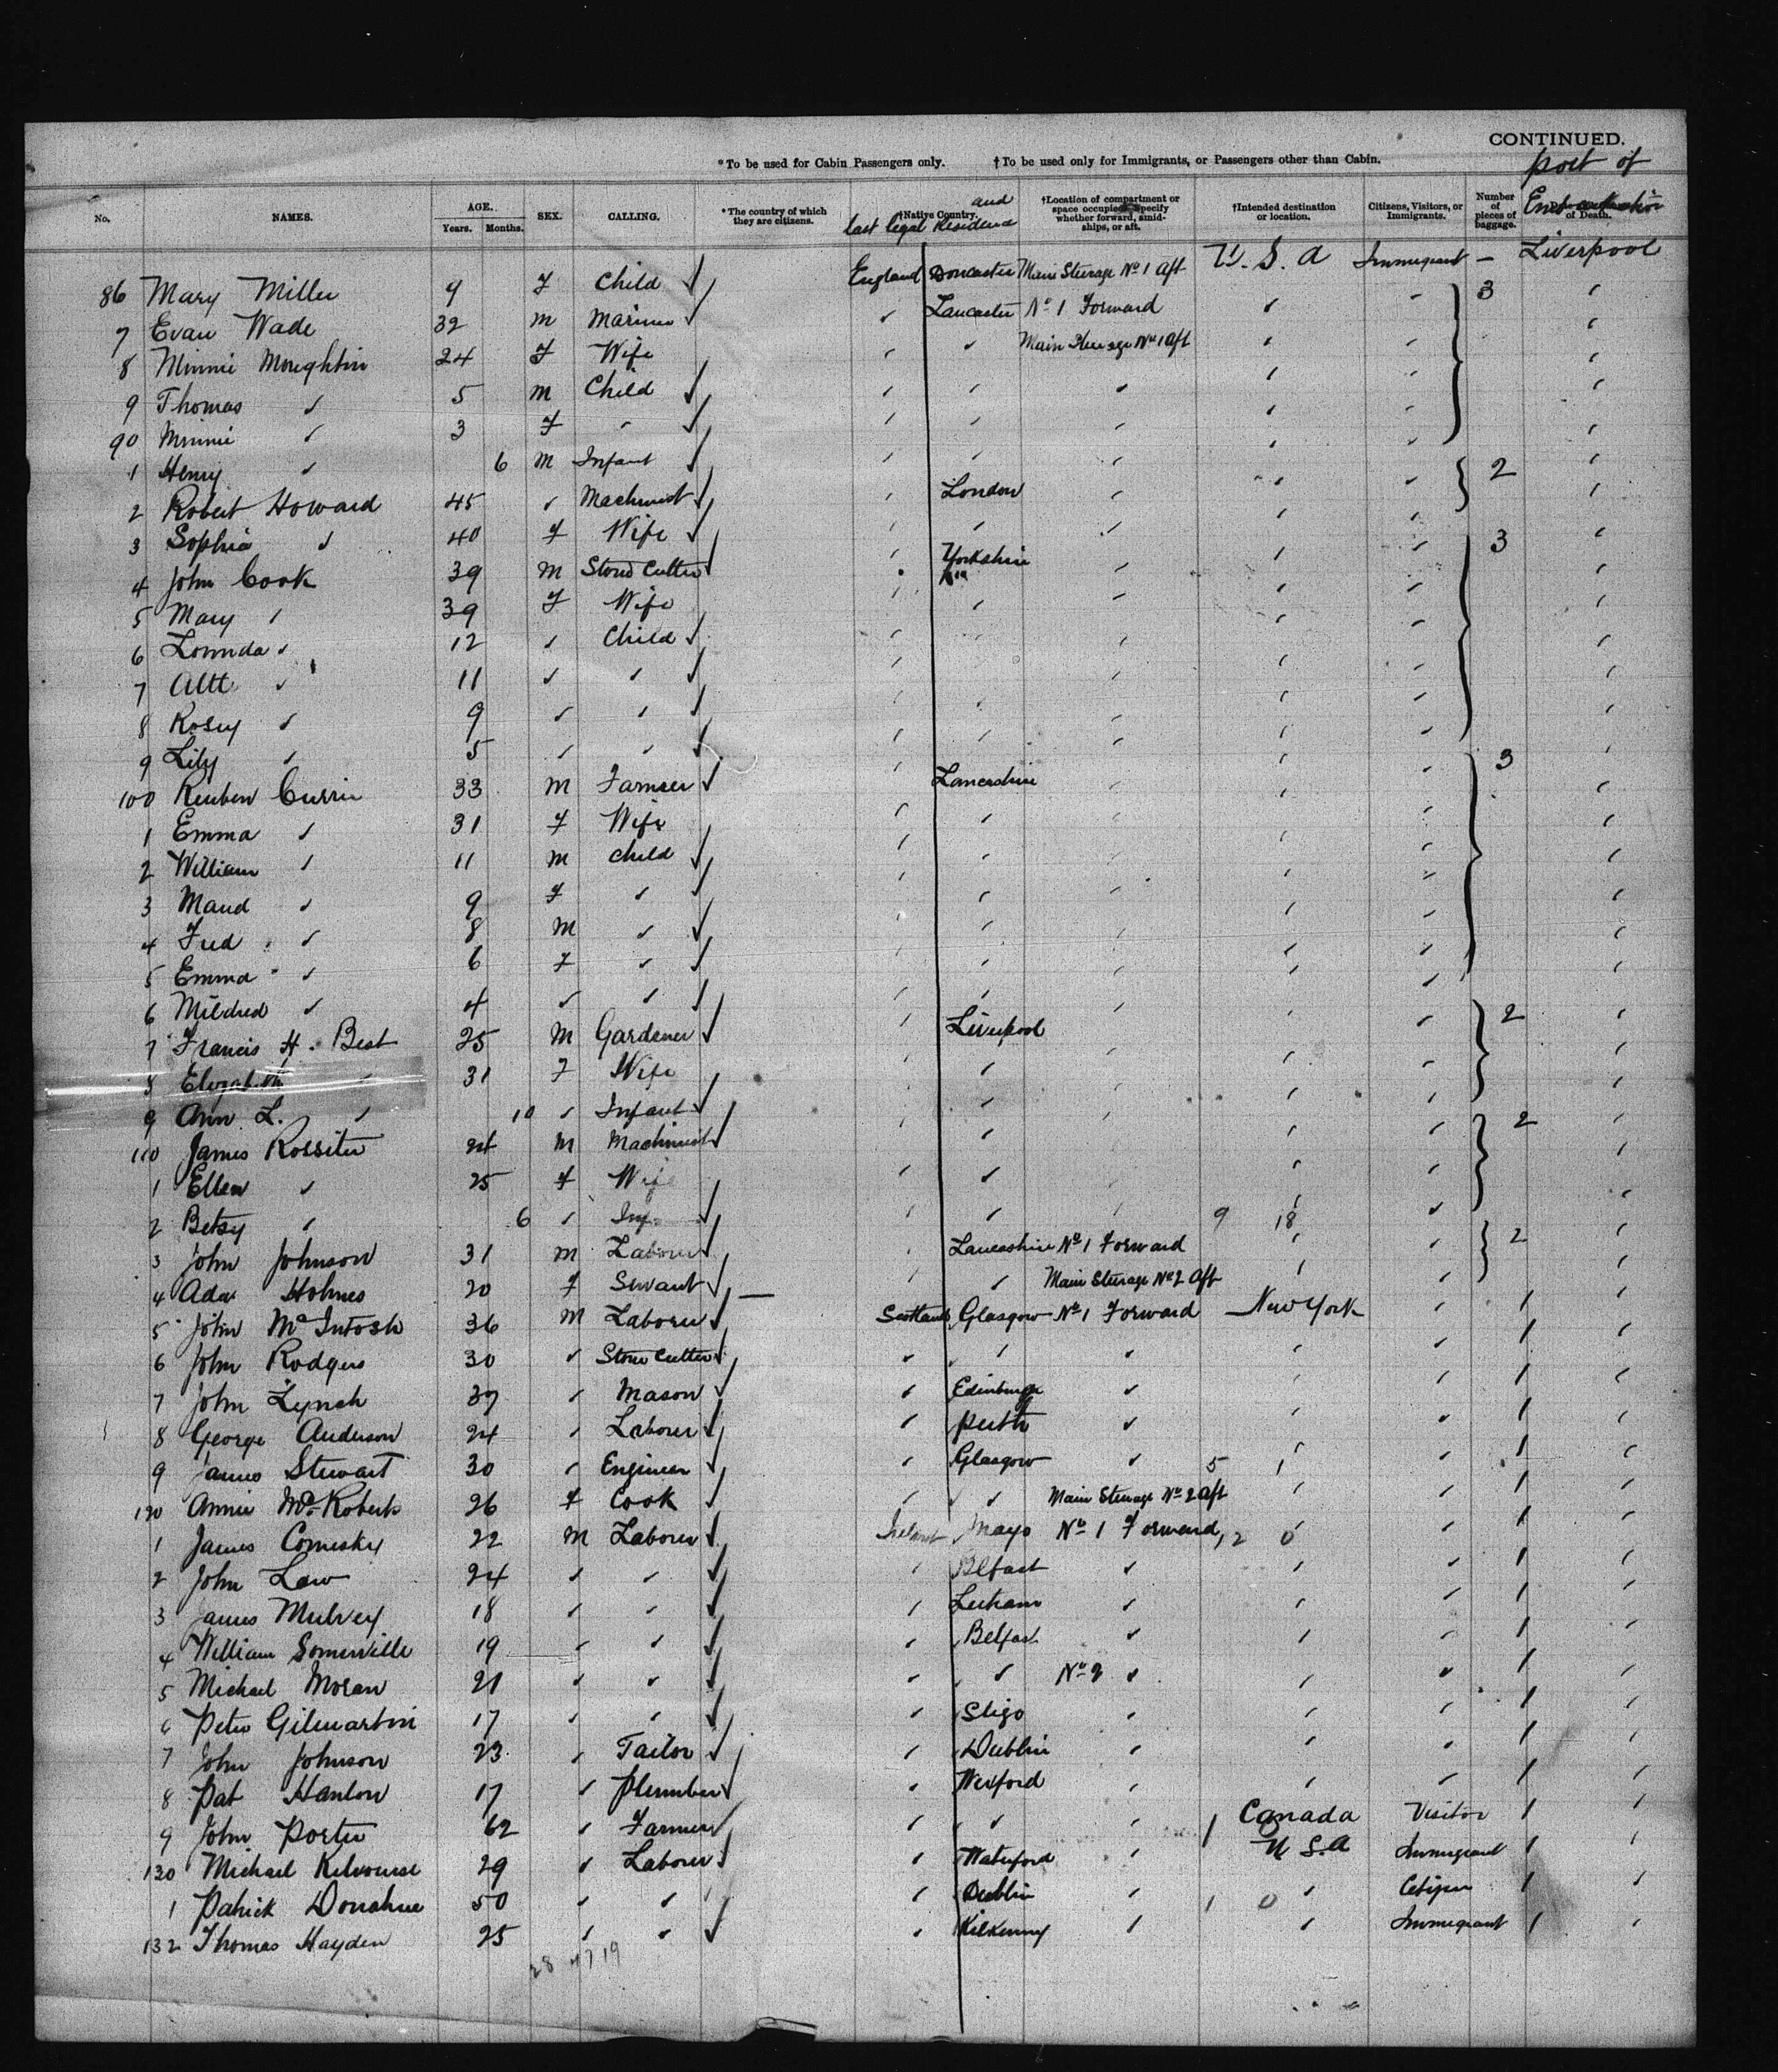 CONTINUED.
*To be used for Cabin Passengers only. †To be used only for Immigrants, or Passengers other than Cabin.
port of
No. NAMES. AGE. Years. Months. SEX. CALLING. *The country of which they are citizens. †Native Country. and last legal Residence †Location of compartment or space occupied, specify whether forward, amidships, or aft. †Intended destination or location. Citizens, Visitors, or Immigrants. Number of pieces of baggage. Embarkation of Death.
86 Mary Miller 9 F Child ✓ England Doncaster Main Steerage No 1 Aft U.S.A Immigrant — Liverpool
7 Evan Wade 32 M Mariner ✓ ✓ Lancaster No 1 Forward 3
8 Minnie Moughtin 24 F Wife ✓ Main Steerage No 1 Aft
9 Thomas ✓ 5 M Child ✓
90 Minnie ✓ 3 F ✓ ✓
1 Henry ✓ 6 M Infant ✓
2 Robert Howard 45 ✓ Machinist ✓ London 2
3 Sophia ✓ 40 F Wife ✓
4 John Cook 39 M Stone Cutter ✓ Yorkshire 3
5 Mary 39 F Wife
6 Lounda ✓ 12 ✓ Child ✓
7 ✓ 11 ✓ ✓ ✓
8 Rosey ✓ 9 ✓ ✓ ✓
9 Lily ✓ 5 ✓ ✓ ✓
100 Reuben Currier 33 M Farmer ✓ Lancashire 3
1 Emma ✓ 31 F Wife
2 William ✓ 11 M Child ✓
3 Maud ✓ 9 F ✓ ✓
4 Fred ✓ 8 M ✓ ✓
5 Emma ✓ 6 F ✓ ✓
6 Mildred ✓ 4 ✓ ✓ ✓
7 Francis H. Best 25 M Gardener ✓ Liverpool 2
8 Elizabeth 31 F Wife
9 Ann L. ✓ 10 ✓ Infant ✓
110 James Rossiter 24 M Machinist ✓ 2
1 Ellen ✓ 25 F Wife
2 Betsy ✓ 6 ✓ Inf ✓ 9 18
3 John Johnson 31 M Laborer ✓ Lancashire No 1 Forward 2
4 Ada Holmes 20 F Servant ✓ — ✓ Main Steerage No 2 Aft
5 John McIntosh 36 M Laborer ✓ Scotland Glasgow No 1 Forward New York 1
6 John Rodgers 30 ✓ Stone Cutter ✓ 1
7 John Lynch 37 ✓ Mason ✓ Edinburgh ✓ 1
8 George Anderson 24 ✓ Laborer ✓ Perth ✓ 1
9 James Stewart 30 ✓ Engineer ✓ Glasgow ✓ 5 1 1
120 Annie McRoberts 26 F Cook ✓ ✓ Main Steerage No 2 Aft 1
1 James Comisky 22 M Laborer ✓ Ireland Mayo No 1 Forward 12 0 1
2 John Law 24 ✓ ✓ ✓ Belfast ✓ 1
3 James Mulvey 18 ✓ ✓ ✓ ✓ 1
4 William Somerville 19 ✓ ✓ ✓ Belfast ✓ 1
5 Michael Moran 21 ✓ ✓ ✓ ✓ No 2 ✓ 1
6 Peter Gilmartin 17 ✓ ✓ ✓ Sligo ✓ 1
7 John Johnson 23 ✓ Tailor ✓ Dublin ✓ 1
8 Pat Hanlon 17 ✓ Plumber ✓ Wexford ✓ 1
9 John Porter 62 ✓ Farmer ✓ ✓ ✓ 1 Canada Visitor 1
130 Michael 29 ✓ Laborer ✓ Waterford ✓ U S.A Immigrant 1
1 Patrick Donahue 50 ✓ ✓ Dublin ✓ 1 0 ✓ Citizen 1
132 Thomas Hayden 25 ✓ ✓ ✓ Kilkenny ✓ ✓ Immigrant 1
28 4719